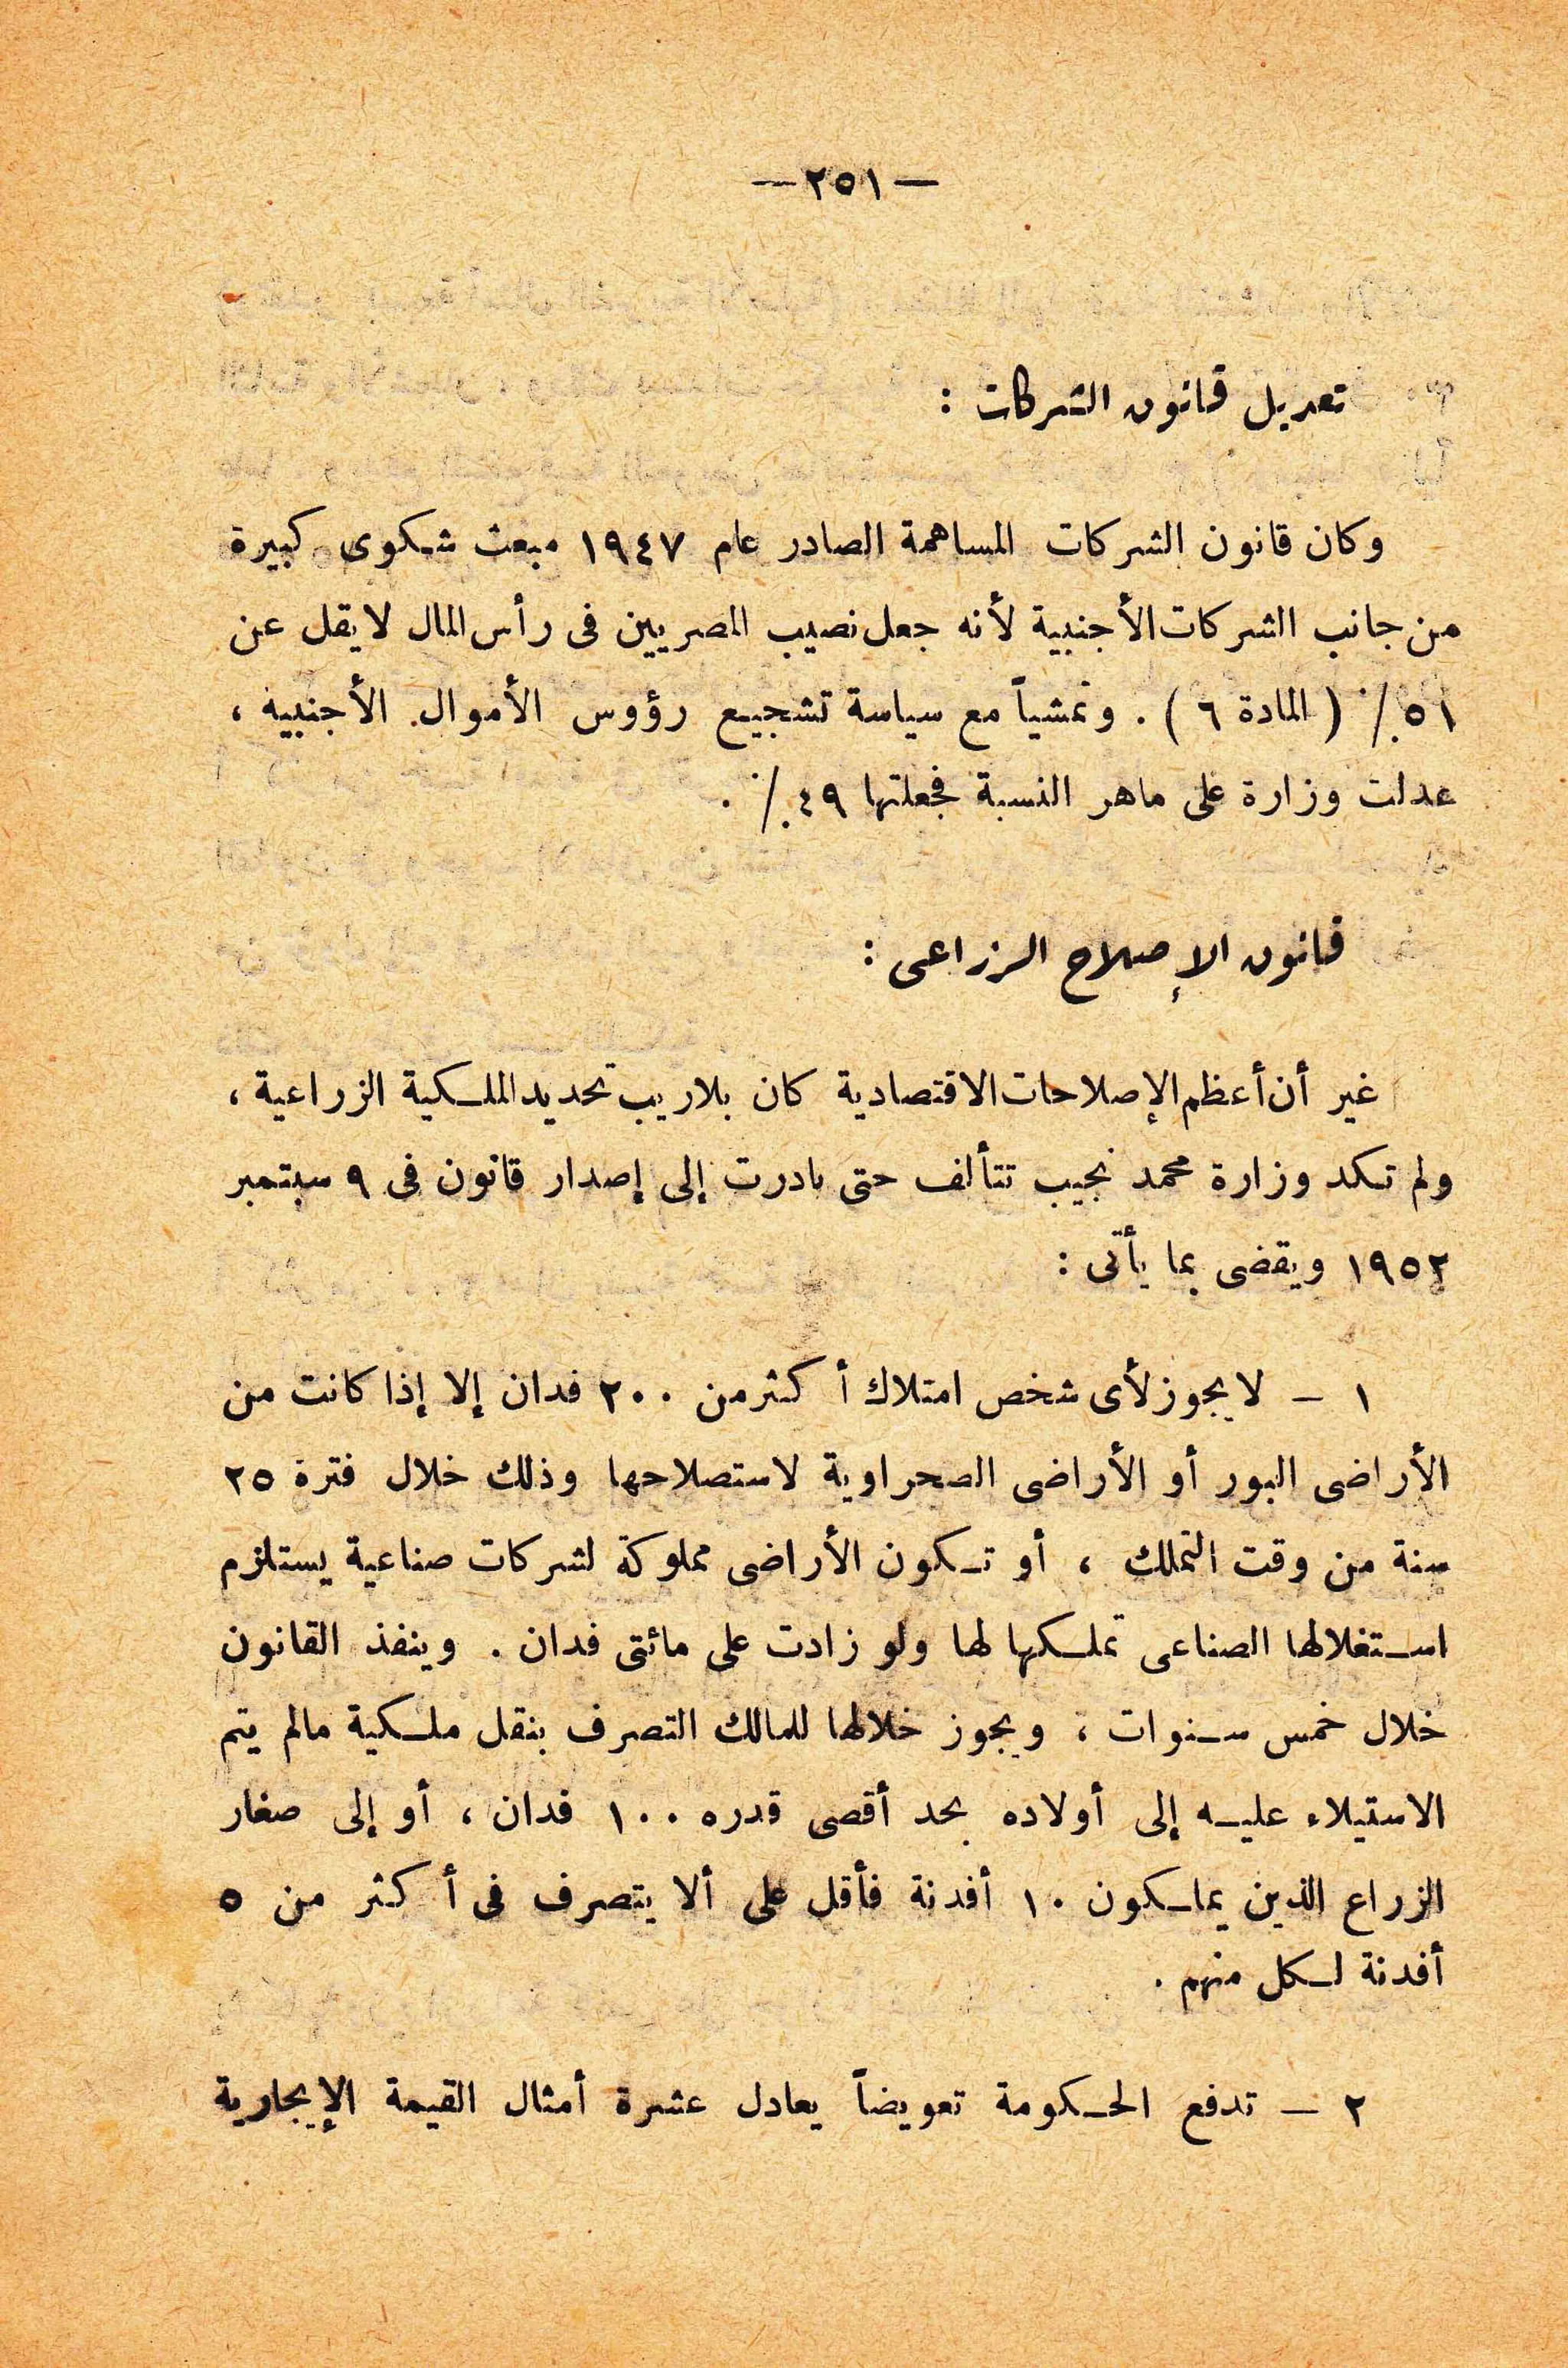 — ٢٥١ —
تعديل قانون الشركات :
وكان قانون الشركات المساهمة الصادر عام ١٩٤٧ مبعث شكوى كبيرة
من جانب الشركات الأجنبية لأنه جعل نصيب المصريين فى رأس المال لا يقل عن
٥١ ٪ ( المادة ٦ ) . وتمشياً مع سياسة تشجيع رؤوس الأموال الأجنبية ،
عدلت وزارة على ماهر النسبة فجعلتها ٤٩ ٪ .
قانون الإصلاح الزراعى :
غير أن أعظم الإصلاحات الاقتصادية كان بلا ريب تحديد الملكية الزراعية ،
ولم تكد وزارة محمد نجيب تتألف حتى بادرت إلى إصدار قانون فى ٩ سبتمبر
١٩٥٢ ويقضى بما يأتى :
١ – لا يجوز لأى شخص امتلاك أكثر من ٢٠٠ فدان إلا إذا كانت من
الأراضى البور أو الأراضى الصحراوية لاستصلاحها وذلك خلال فترة ٢٥
سنة من وقت التملك ، أو تكون الأراضى مملوكة لشركات صناعية يستلزم
استغلالها الصناعى تملكها لها ولو زادت على مائتى فدان . وينفذ القانون
خلال خمس سنوات ، ويجوز خلالها للمالك التصرف بنقل ملكية مالم يتم
الاستيلاء عليه إلى أولاده بحد أقصى قدره ١٠٠ فدان ، أو إلى صغار
الزراع الذين يملكون ١٠ أفدنة فأقل على ألا يتصرف فى أكثر من ٥
أفدنة لكل منهم .
٢ – تدفع الحكومة تعويضاً يعادل عشرة أمثال القيمة الإيجارية